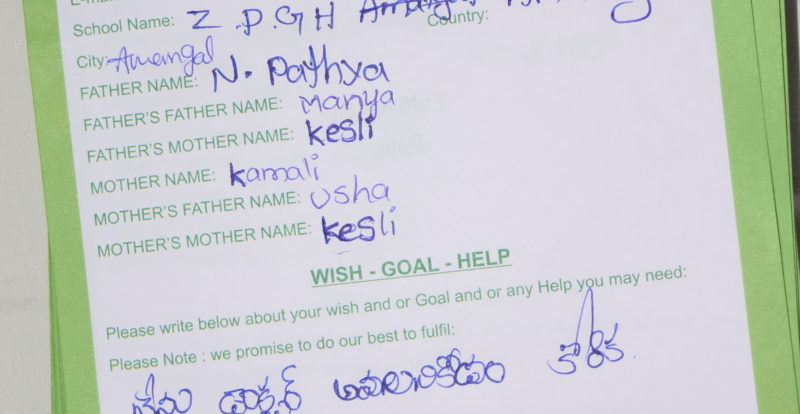 School Name: Z.P.G H
Country:
City: Amangal
FATHER NAME: N. Pathya
FATHER'S FATHER NAME: Manya
FATHER'S MOTHER NAME: kesli
MOTHER NAME: kamali
MOTHER'S FATHER NAME: Usha
MOTHER'S MOTHER NAME: kesli
WISH - GOAL - HELP
Please write below about your wish and or Goal and or any Help you may need:
Please Note : we promise to do our best to fulfil:
నేను డాక్టర్ అవలనికోవడం కోరిక.